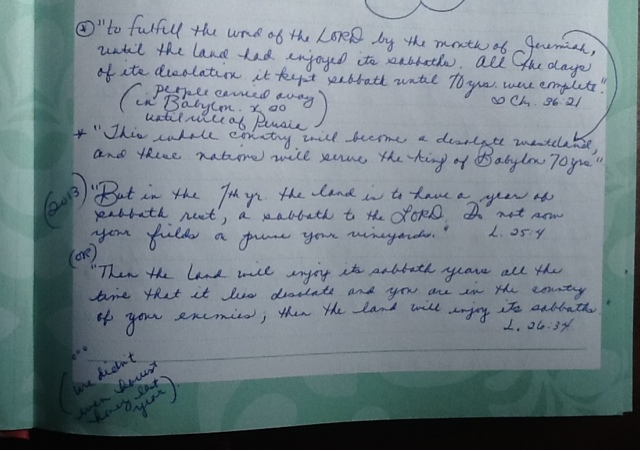 * "to fulfill the word of the LORD by the mouth of Jeremiah,
until the land had enjoyed its sabbaths. All the days
of its desolation it kept sabbath until 70 yrs. were complete."
2 Ch. 36:21
(people carried away
in Babylon
until rule of Persia)
* "This whole country will become a desolate wasteland,
and these nations will serve the king of Babylon 70 yrs"
(2013) "But in the 7th yr. the land is to have a year of
sabbath rest, a sabbath to the LORD. Do not sow
your fields or prune your vineyards." L. 25:4
(OR)
"Then the land will enjoy its sabbath years all the
time that it lies desolate and you are in the country
of your enemies; then the land will enjoy its sabbaths.
L. 26:34
...
(we didn't
even harvest
honey last
year)